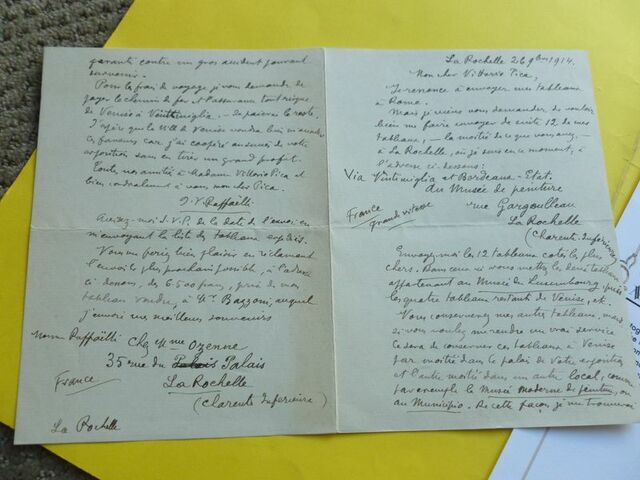 La Rochelle 26 9bre 1914.
Mon cher Vittorio Pica,
Je renonce à envoyer mes tableaux
à Rome.
Mais je viens vous demander de vouloir
bien me faire envoyer de suite 12 de mes
tableaux, — la moitié de ce que vous avez, —
à La Rochelle, où je suis en ce moment, à
l'adresse ci dessous:
Via Vintimiglia et Bordeaux-Etat.
au Musée de peinture
rue Gargoulleau
La Rochelle
(Charente Inférieure)
France
grande vitesse
Envoyez moi les 12 tableaux cotés les plus
chers. Dans ceux ci vous mettrez les deux tableaux
appartenant au Musée du Luxembourg, puis
les quatre tableaux restants de Venise, etc.
Vous conserverez mes autres tableaux, mais
si vous voulez me rendre un vrai service
ce sera de conserver ces tableaux à Venise
par moitié dans le palais de votre exposition
et l'autre moitié dans un autre local, comme
par exemple le Musée moderne de peinture, ou
au Municipio. De cette façon je me trouverai
garanti contre un gros accident pouvant
survenir.
Pour les frais de voyage je vous demande de
payer le chemin de fer et l'assurance tout risque
de Venise à Vintimiglia. — Je paierai le reste.
J'espère que la Ville de Venise voudra bien m'accorder
ces faveurs car j'ai coopéré au succès de votre
exposition sans en tirer un grand profit.
Toutes nos amitiés à Madame Vittorio Pica et
bien cordialement à vous, mon cher Pica.
J. F. Raffaëlli
Avisez-moi S.V.P. de la date de l'envoi en
m'envoyant la liste des tableaux expédiés.
Vous me ferez bien plaisir en réclamant
l'envoi le plus prochain possible, à l'adresse
ci dessous, des 6.500 francs, prix de mes
tableaux vendus, à Mr. Bazzoni, auquel
j'envoie mes meilleurs souvenirs
Monsieur Raffaëlli
chez Mme Ozenne
35 rue du Palais Palais
La Rochelle
(Charente Inférieure)
France
La Rochelle